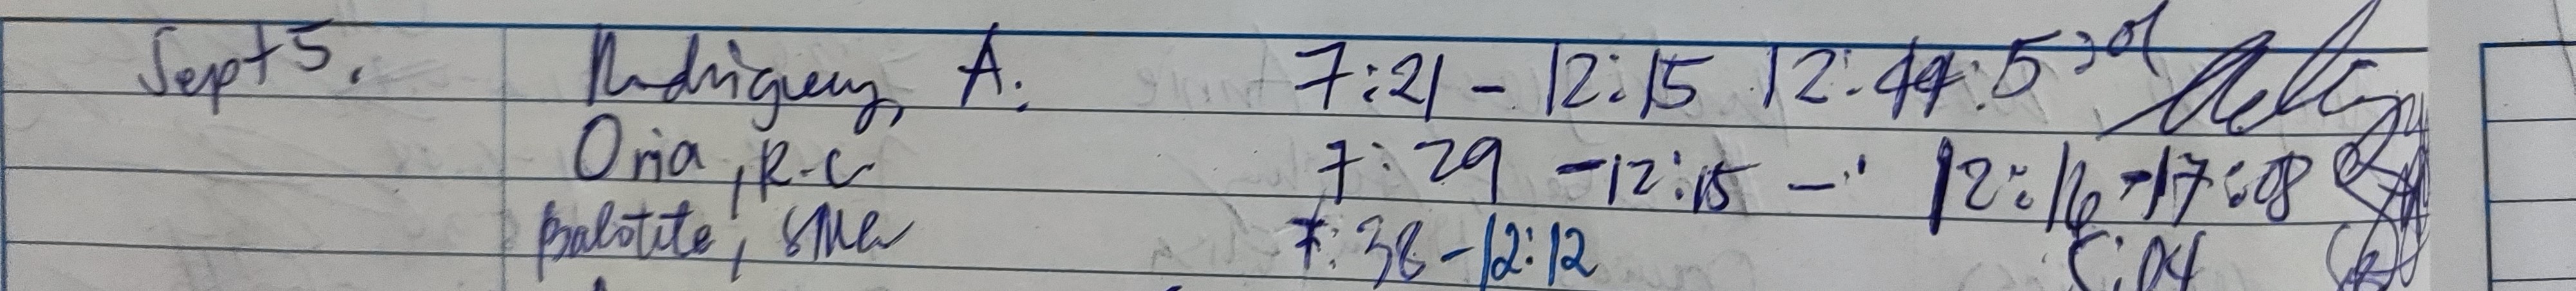 Sept 5. Rodriguez, A. 7:21 - 12:15 12:44: 5:01
Oria, R.C 7:29 - 12:15 - 12:16 - 17:08
Balotite, 7:38 - 12:12 5:04